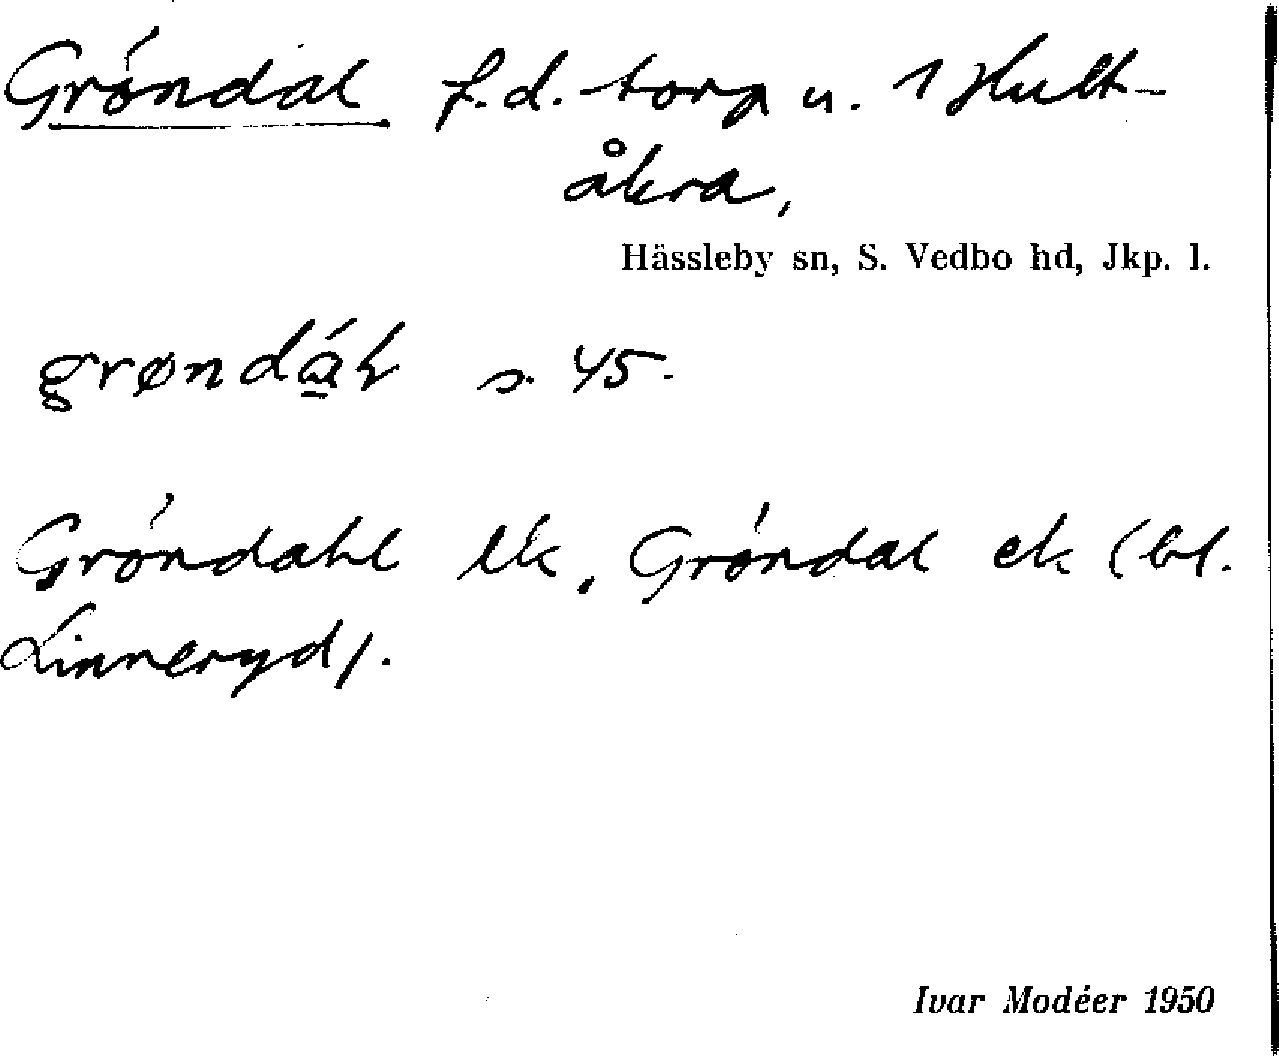 Gröndal f.d. torp u. 1 Hult-
åkra,
Hässleby sn, S. Vedbo hd, Jkp. l.
s. 45.
Gröndahl lk, Gröndal ek (bl.
Linneryd).
Ivar Modéer 1950